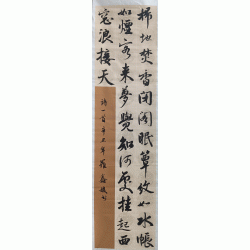 掃地焚香閉閣眠簟紋如水帳
如煙客來夢覺知何處挂起西
窓浪接天
詩一首辛丑年